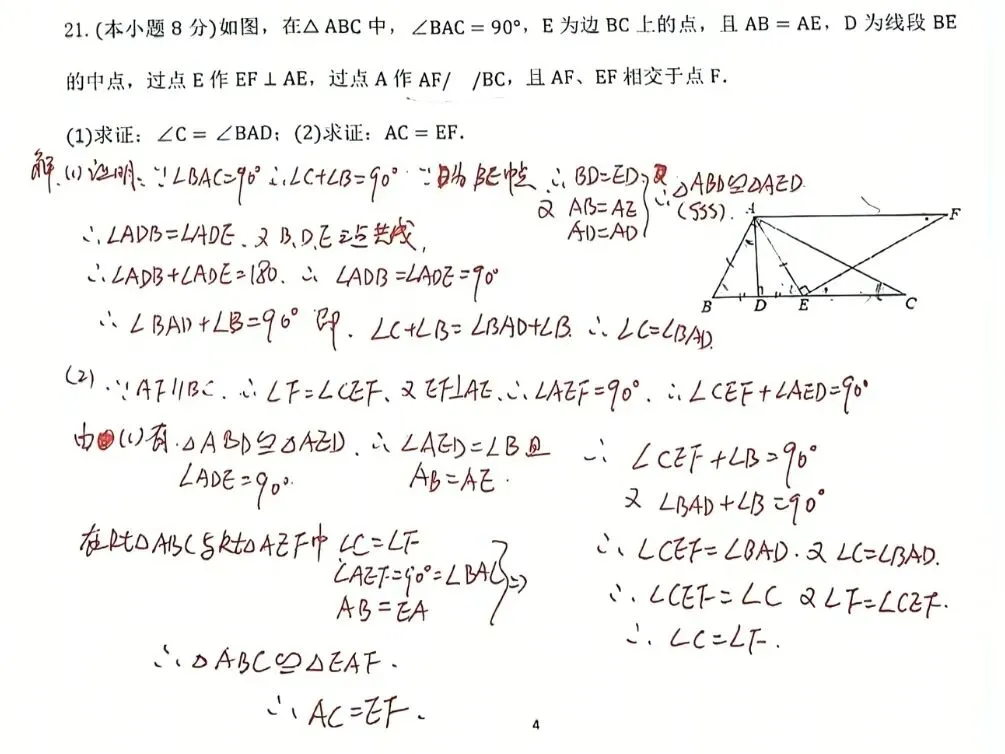 21. (本小题 8 分)如图，在△ ABC 中，∠BAC = 90°，E 为边 BC 上的点，且 AB = AE，D 为线段 BE
的中点，过点 E 作 EF ⊥ AE，过点 A 作 AF/ /BC，且 AF、EF 相交于点 F.
(1)求证：∠C = ∠BAD；(2)求证：AC = EF.
解、(1)证明：∵∠BAC=90° ∴∠C+∠B=90° ∵D为BE中点 ∴BD=ED,
又 AB=AE
AD=AD
∴△ABD≌△AED
(SSS).
∴∠ADB=∠ADE、又B、D、E三点共线,
∴∠ADB+∠ADE=180. ∴ ∠ADB=∠ADE=90°
∴ ∠BAD+∠B=90° 即. ∠C+∠B=∠BAD+∠B. ∴∠C=∠BAD.
A F
B D E C
(2) ∵AF//BC. ∴∠F=∠CEF、又EF⊥AE、∴∠AEF=90°. ∴∠CEF+∠AED=90°
由(1)有.△ABD≌△AED. ∴∠AED=∠B且
∠ADE=90°. AB=AE.
在Rt△ABC与Rt△AEF中 ∠C=∠F
∠AEF=90°=∠BAC
AB=EA
⇒
∴△ABC≌△EAF.
∴AC=EF.
∴ ∠CEF+∠B=90°
又 ∠BAD+∠B=90°
∴∠CEF=∠BAD.又∠C=∠BAD.
∴∠CEF=∠C 又∠F=∠CEF.
∴ ∠C=∠F.
4